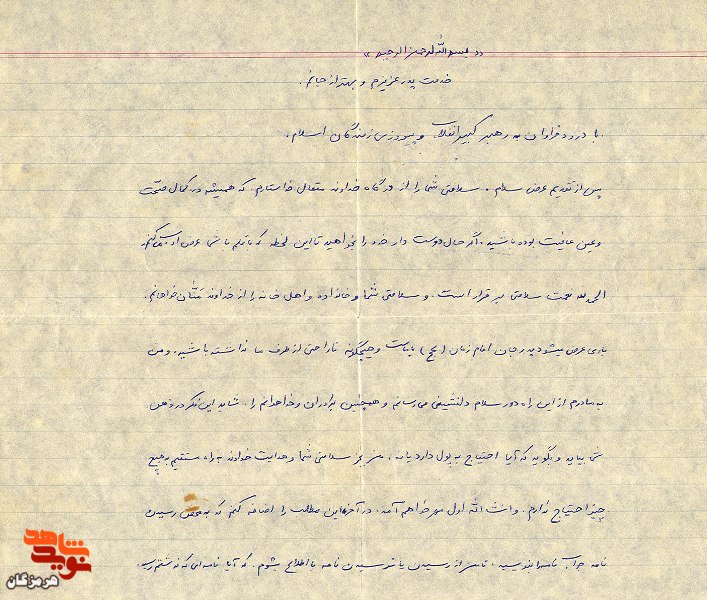 « بسم الله الرحمن الرحیم »
خدمت پدر عزیزم و بهتر از جانم.
با درود فراوان به رهبر کبیر انقلاب و پیروزی رزمندگان اسلام.
پس از تقدیم عرض سلام، سلامتی شما را از درگاه خداوند متعال خواستارم، که همیشه در کمال صحت
وعین عافیت بوده باشید. اگر حال دوست دار خود را بخواهید تا این لحظه که با قلم با شما عرض ادب می‌کنم
الحمدلله صحت سلامتی برقرار است. و سلامتی شما و خانواده و اهل خانه را از خداوند منّان خواهانم.
باری عرض میشود پدر جان امام زمان (عج) با ماست وهیچگونه ناراحتی از طرف ما نداشته باشید. ومن
به مادرم از این راه دور سلام دلنشینی می‌رسانم و همچنین برادران و خواهرانم را. شاید این فکر در ذهن
می بیاید و بگوید که آیا احتیاج به پول دارد یا نه. من بجز سلامتی شما و هدایت خداوند به راه مستقیم به هیچ
چیز احتیاج ندارم. وانشاالله اول مهر خواهم آمد. در آخر این مطلب را اضافه کنم که به محض رسیدن
نامه جواب نامه را بنویسید. تا من از رسیدن یا نرسیدن نامه با اطلاع بشوم. که آیا نامه‌ای که نوشتم
شاهد
نوید
هرمزگان